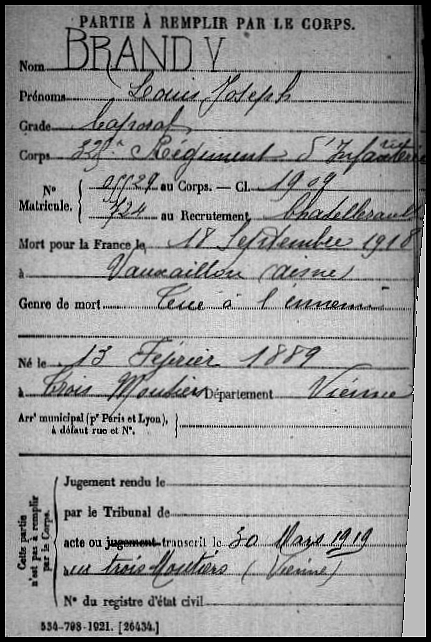 PARTIE À REMPLIR PAR LE CORPS.
Nom BRANDY
Prénoms Louis Joseph
Grade Caporal
Corps Régiment d'Infanterie
Nº 05529 au Corps. — Cl. 1909
Matricule. 724 au Recrutement Chatellerault
Mort pour la France le 18 Septembre 1918
à Vauxaillon (Aisne)
Genre de mort Tué à l'ennemi
Né le 13 Février 1889
à Trois Moutiers Département Vienne
Arrt municipal (pr Paris et Lyon),
à défaut rue et Nº.
Cette partie n'est pas à remplir par le Corps.
Jugement rendu le
par le Tribunal de
acte ou jugement transcrit le 30 Mars 1919
trois Moutiers (Vienne)
Nº du registre d'état civil
534-708-1921. [26434.]